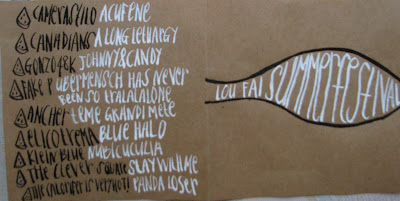 CAMERASOLO ACUFENE
CANADIANS A LONG LETHARGY
GONZO48K JOHNNY&CANDY
FAKE P ÜBERMENSCH HAS NEVER
BEEN SO TRALALALONE
ANCHER TEME GRANDI METE
ELICOTREMA BLUE HALO
KLEIN BLUE
THE CLEVER SQUARE STAY WITH ME
THE CALORIFER IS VERY HOT! PANDA LOSER
LOU FAI SUMMER FESTIVAL